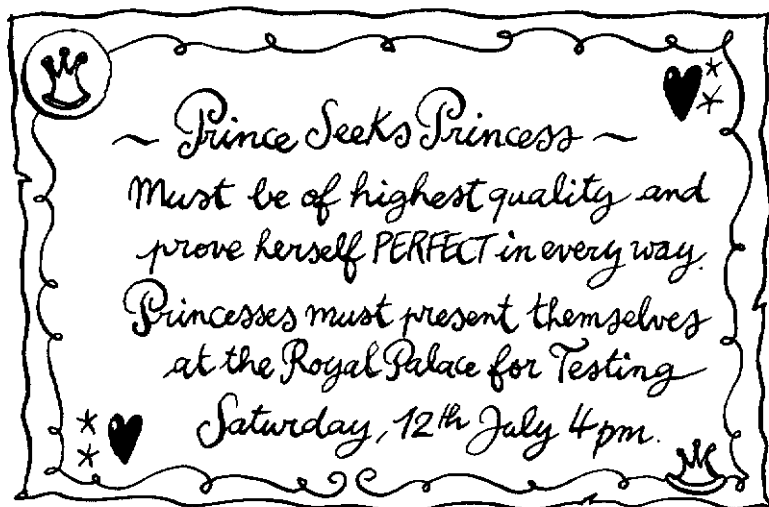 ~ Prince Seeks Princess ~
Must be of highest quality and
prove herself PERFECT in every way.
Princesses must present themselves
at the Royal Palace for Testing
Saturday, 12th July 4 pm.